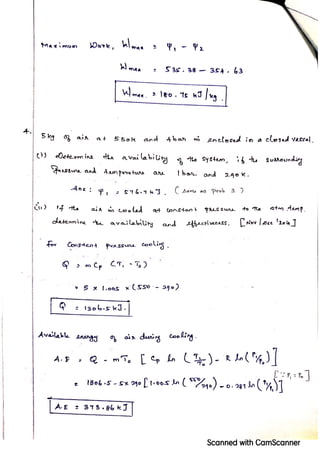 Maximum Work, Wmax = ψ1 - ψ2
Wmax = 535.38 - 354.63
Wmax = 180.75 kJ/kg.
4.
5 kg of air at 550K and 4 bar is enclosed in a closed vessel.
(i) Determine the availability of the system, if the surrounding
pressure and temperature are 1 bar and 290K.
Ans : ψ1 = 576.7 kJ. (Same as prob 3)
(ii) If the air is cooled at constant pressure to the atm temp.
determine the availability and effectiveness. [Nov/Dec
for Constant pressure cooling.
Q = m Cp (T1 - To)
= 5 x 1.005 x (550 - 290)
Q = 1306.5 kJ.
Available energy of air during cooling.
A.E = Q - mTo [Cp ln (T1/To) - R ln (P1/Po)]
[∵ P1 = Po]
= 1306.5 - 5x 290 [1.005 ln (550/290) - 0.287 ln (P1/P1)]
A.E = 373.86 kJ
Scanned with CamScanner